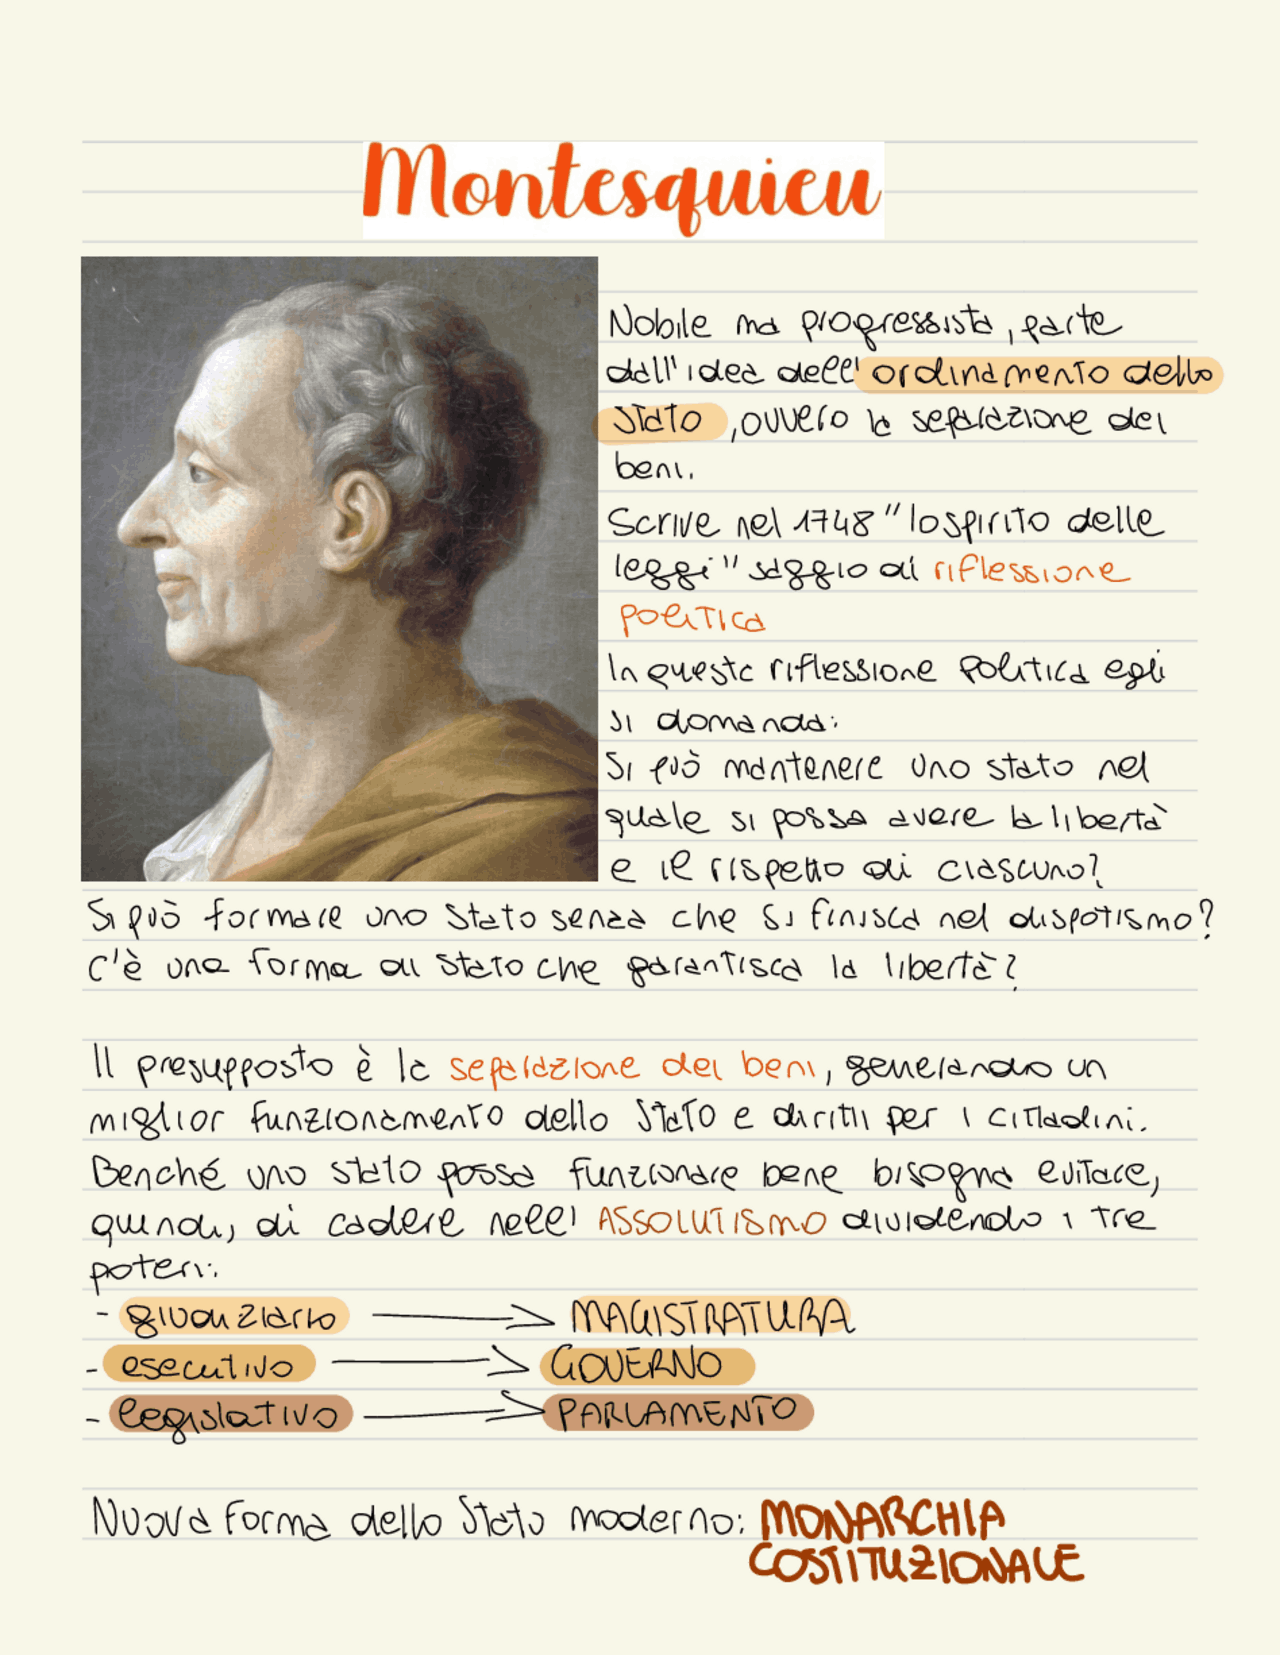 Montesquieu
Nobile ma progressista, parte
dall'idea dell'ordinamento dello
Stato, ovvero la separazione dei
beni.
Scrive nel 1748 "lo spirito delle
leggi" saggio di riflessione
politica
In questa riflessione politica egli
si domanda:
Si può mantenere uno stato nel
quale si possa avere la libertà
e il rispetto di ciascuno?
Si può formare uno stato senza che si finisca nel dispotismo?
C'è una forma di stato che garantisca la libertà?
Il presupposto è la separazione dei beni, generando un
miglior funzionamento dello Stato e diritti per i cittadini.
Benché uno stato possa funzionare bene bisogna evitare,
quindi, di cadere nell'ASSOLUTISMO dividendo i tre
poteri:
- giudiziario → MAGISTRATURA
- esecutivo → GOVERNO
- legislativo → PARLAMENTO
Nuova forma dello Stato moderno: MONARCHIA
COSTITUZIONALE